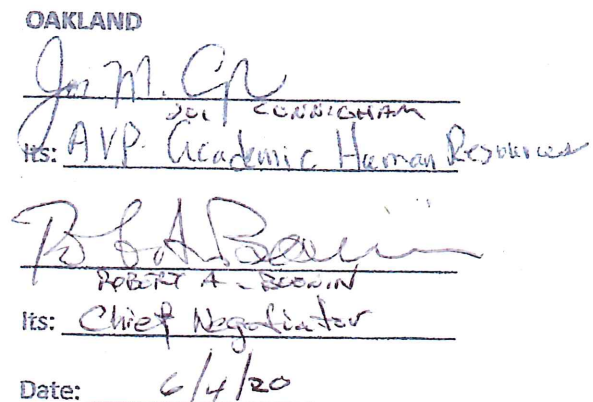 OAKLAND
JOI CUNNIGHAM
Its: AVP. Academic Human Resources
ROBERT A. BOONIN
Its: Chief Negotiator
Date: 6/4/20